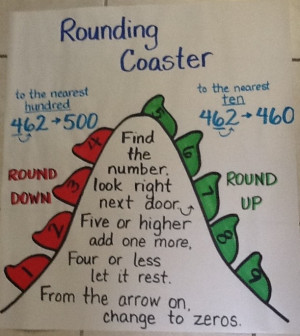 Rounding
Coaster
to the nearest
hundred
462→500
to the nearest
ten
462→460
ROUND
DOWN
1
2
3
4
5
6
7
8
9
ROUND
UP
Find
the
number,
look right
next door.
Five or higher
add one more,
Four or less
let it rest.
From the arrow on,
change to zeros.